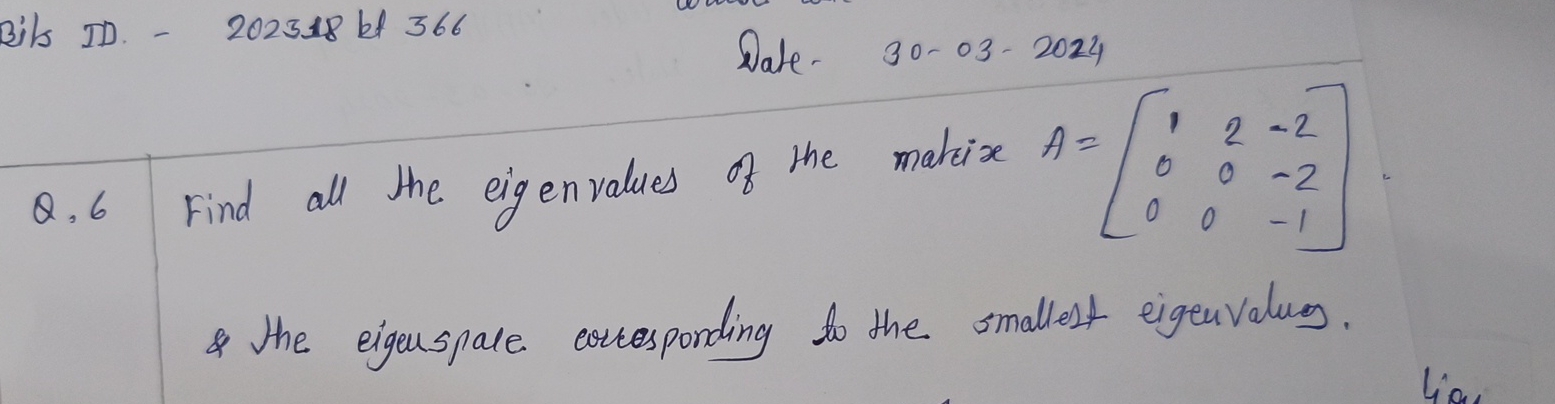 Bits ID. - 202318bt366
Date - 30-03-2024
Q.6 Find all the eigenvalues of the matrix A = [1 2 -2
0 0 -2
0 0 -1].
& the eigenspace corresponding to the smallest eigenvalues.